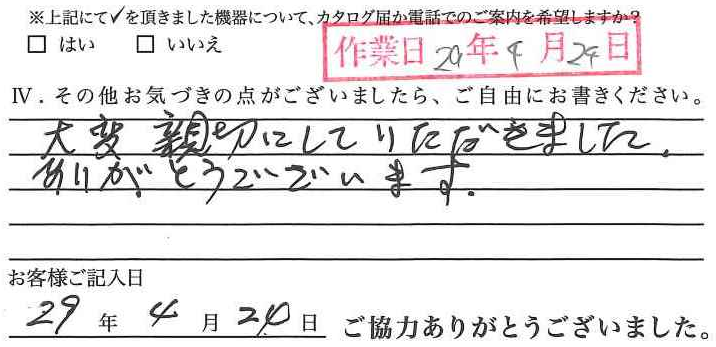 ※上記にて✓を頂きました機器について、カタログ届か電話でのご案内を希望しますか?
□ はい □ いいえ
作業日 29年4月24日
Ⅳ.その他お気づきの点がございましたら、ご自由にお書きください。
大変親切にしていただきました。
ありがとうございます。
お客様ご記入日
29年4月24日 ご協力ありがとうございました。